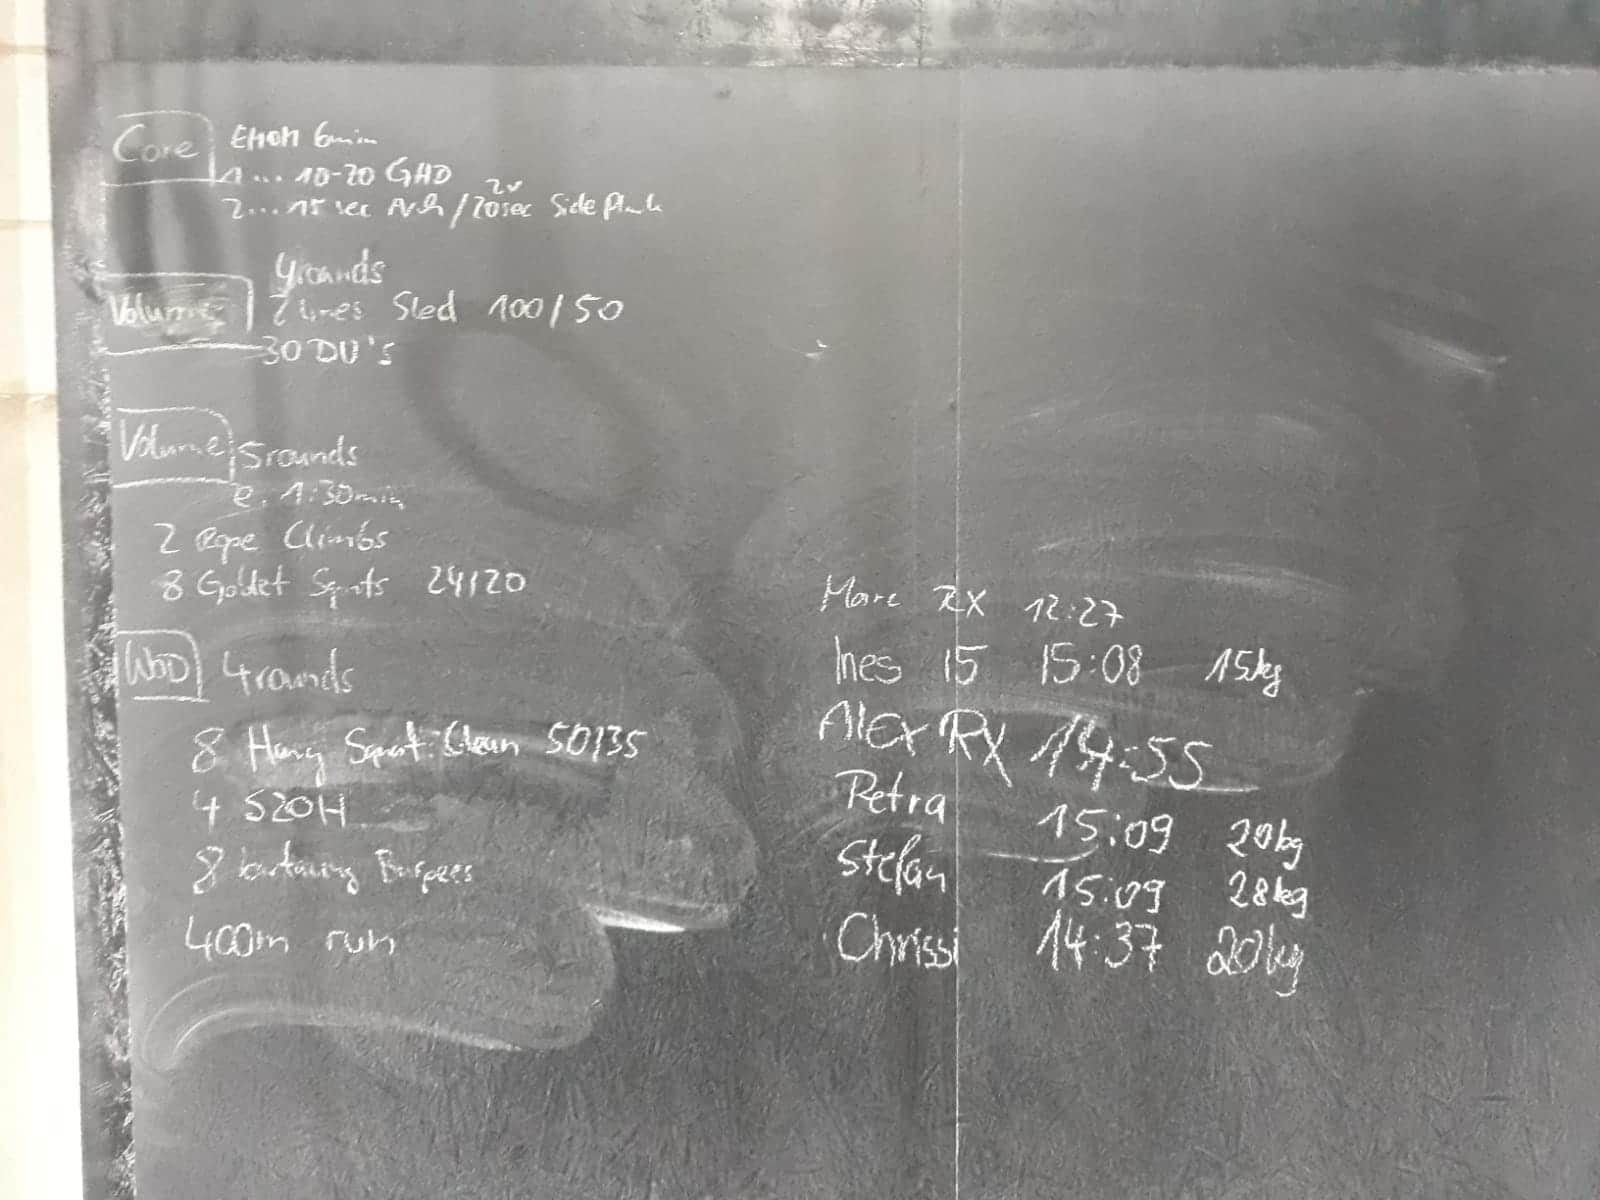 Core EMOM 6min
1... 10-20 GHD
2... 15 sec Arch / 20sec Side Plank
2x
Volume 4rounds
2 lines Sled 100/50
30 DU's
Volume 5rounds
e. 1:30min
2 Rope Climbs
8 Goblet Squats 24/20
WOD 4rounds
8 Hang Squat Clean 50/35
4 S2OH
8 Burpees
400m run
Marc RX 12:27
Ines 15 15:08 15kg
Alex RX 14:55
Petra 15:09 20kg
Stefan 15:09 28kg
Chrissi 14:37 20kg